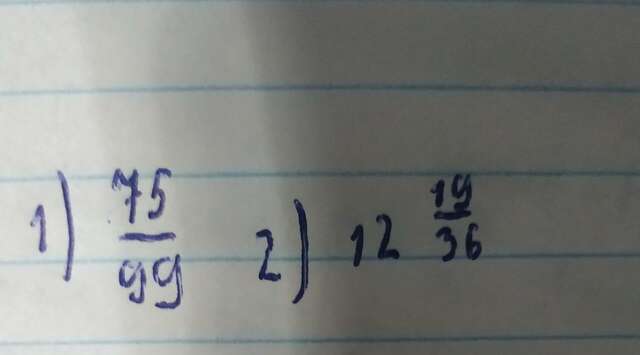 1) 75/99 2) 12 19/36